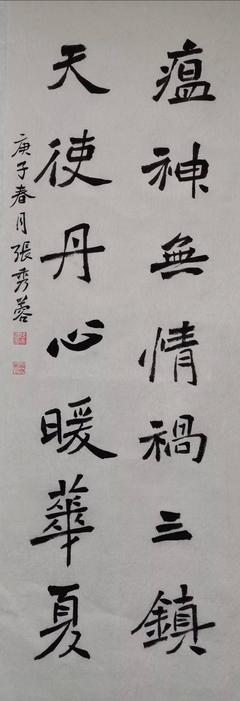 瘟神無情禍三鎮
天使丹心暖華夏
庚子春月張秀蓉